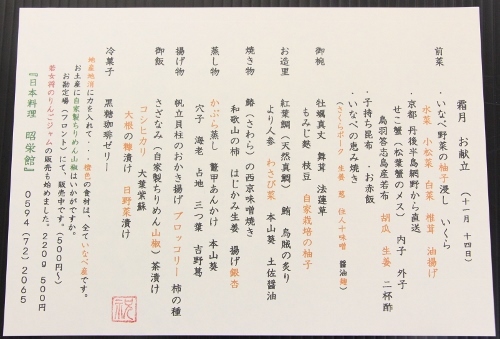 霜月 お献立 (十一月 十四日)
前菜
・いなべ野菜の柚子浸し いくら
水菜 小松菜 白菜 椎茸 油揚げ
・京都 丹後半島網野から直送
せこ蟹(松葉蟹のメス) 内子 外子
鳥羽答志島産若布 胡瓜 生姜 二杯酢
・子持ち昆布 ・お赤飯
・いなべの恵み焼き
(さくらポーク 生姜 葱 仕入十味噌 醤油麹)
御椀
牡蠣真丈 舞茸 法蓮草
もみじ麩 枝豆 自家栽培の柚子
お造里
紅葉鯛(天然真鯛) 鮪 烏賊の炙り
より人参 わさび菜 本山葵 土佐醤油
焼き物
鰆(さわら)の西京味噌焼き
和歌山の柿 はじかみ生姜 揚げ銀杏
蒸し物
かぶら蒸し 鼈甲あんかけ 本山葵
穴子 海老 占地 三つ葉 吉野葛
揚げ物
帆立貝柱のおかき揚げ ブロッコリー 柿の種
御飯
さざなみ(自家製ちりめん山椒)茶漬け
コシヒカリ 大葉紫蘇
大根の糠漬け 日野菜漬け
冷菓子
黒糖珈琲ゼリー
地産地消に力を入れて・・・橙色の食材は、全ていなべ産です。
お土産に自家製ちりめん山椒はいかがですか。
お勘定場(フロント)にて、販売中です。(500円~)
若女将のりんごジャムの販売も始めました。220g 500円
『日本料理 昭栄館』 0594(72)2065
祝